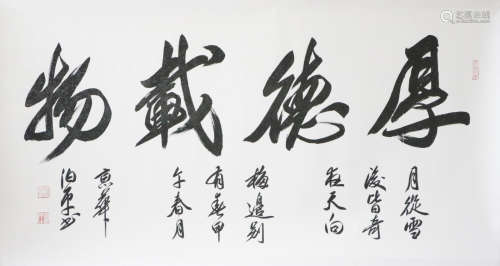 厚德載物
月從雪
後皆奇
夜天向
梅邊別
有春甲
午春月
京華